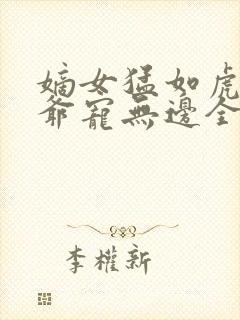 嫡女猛如虎
爺寵無邊全
李權新